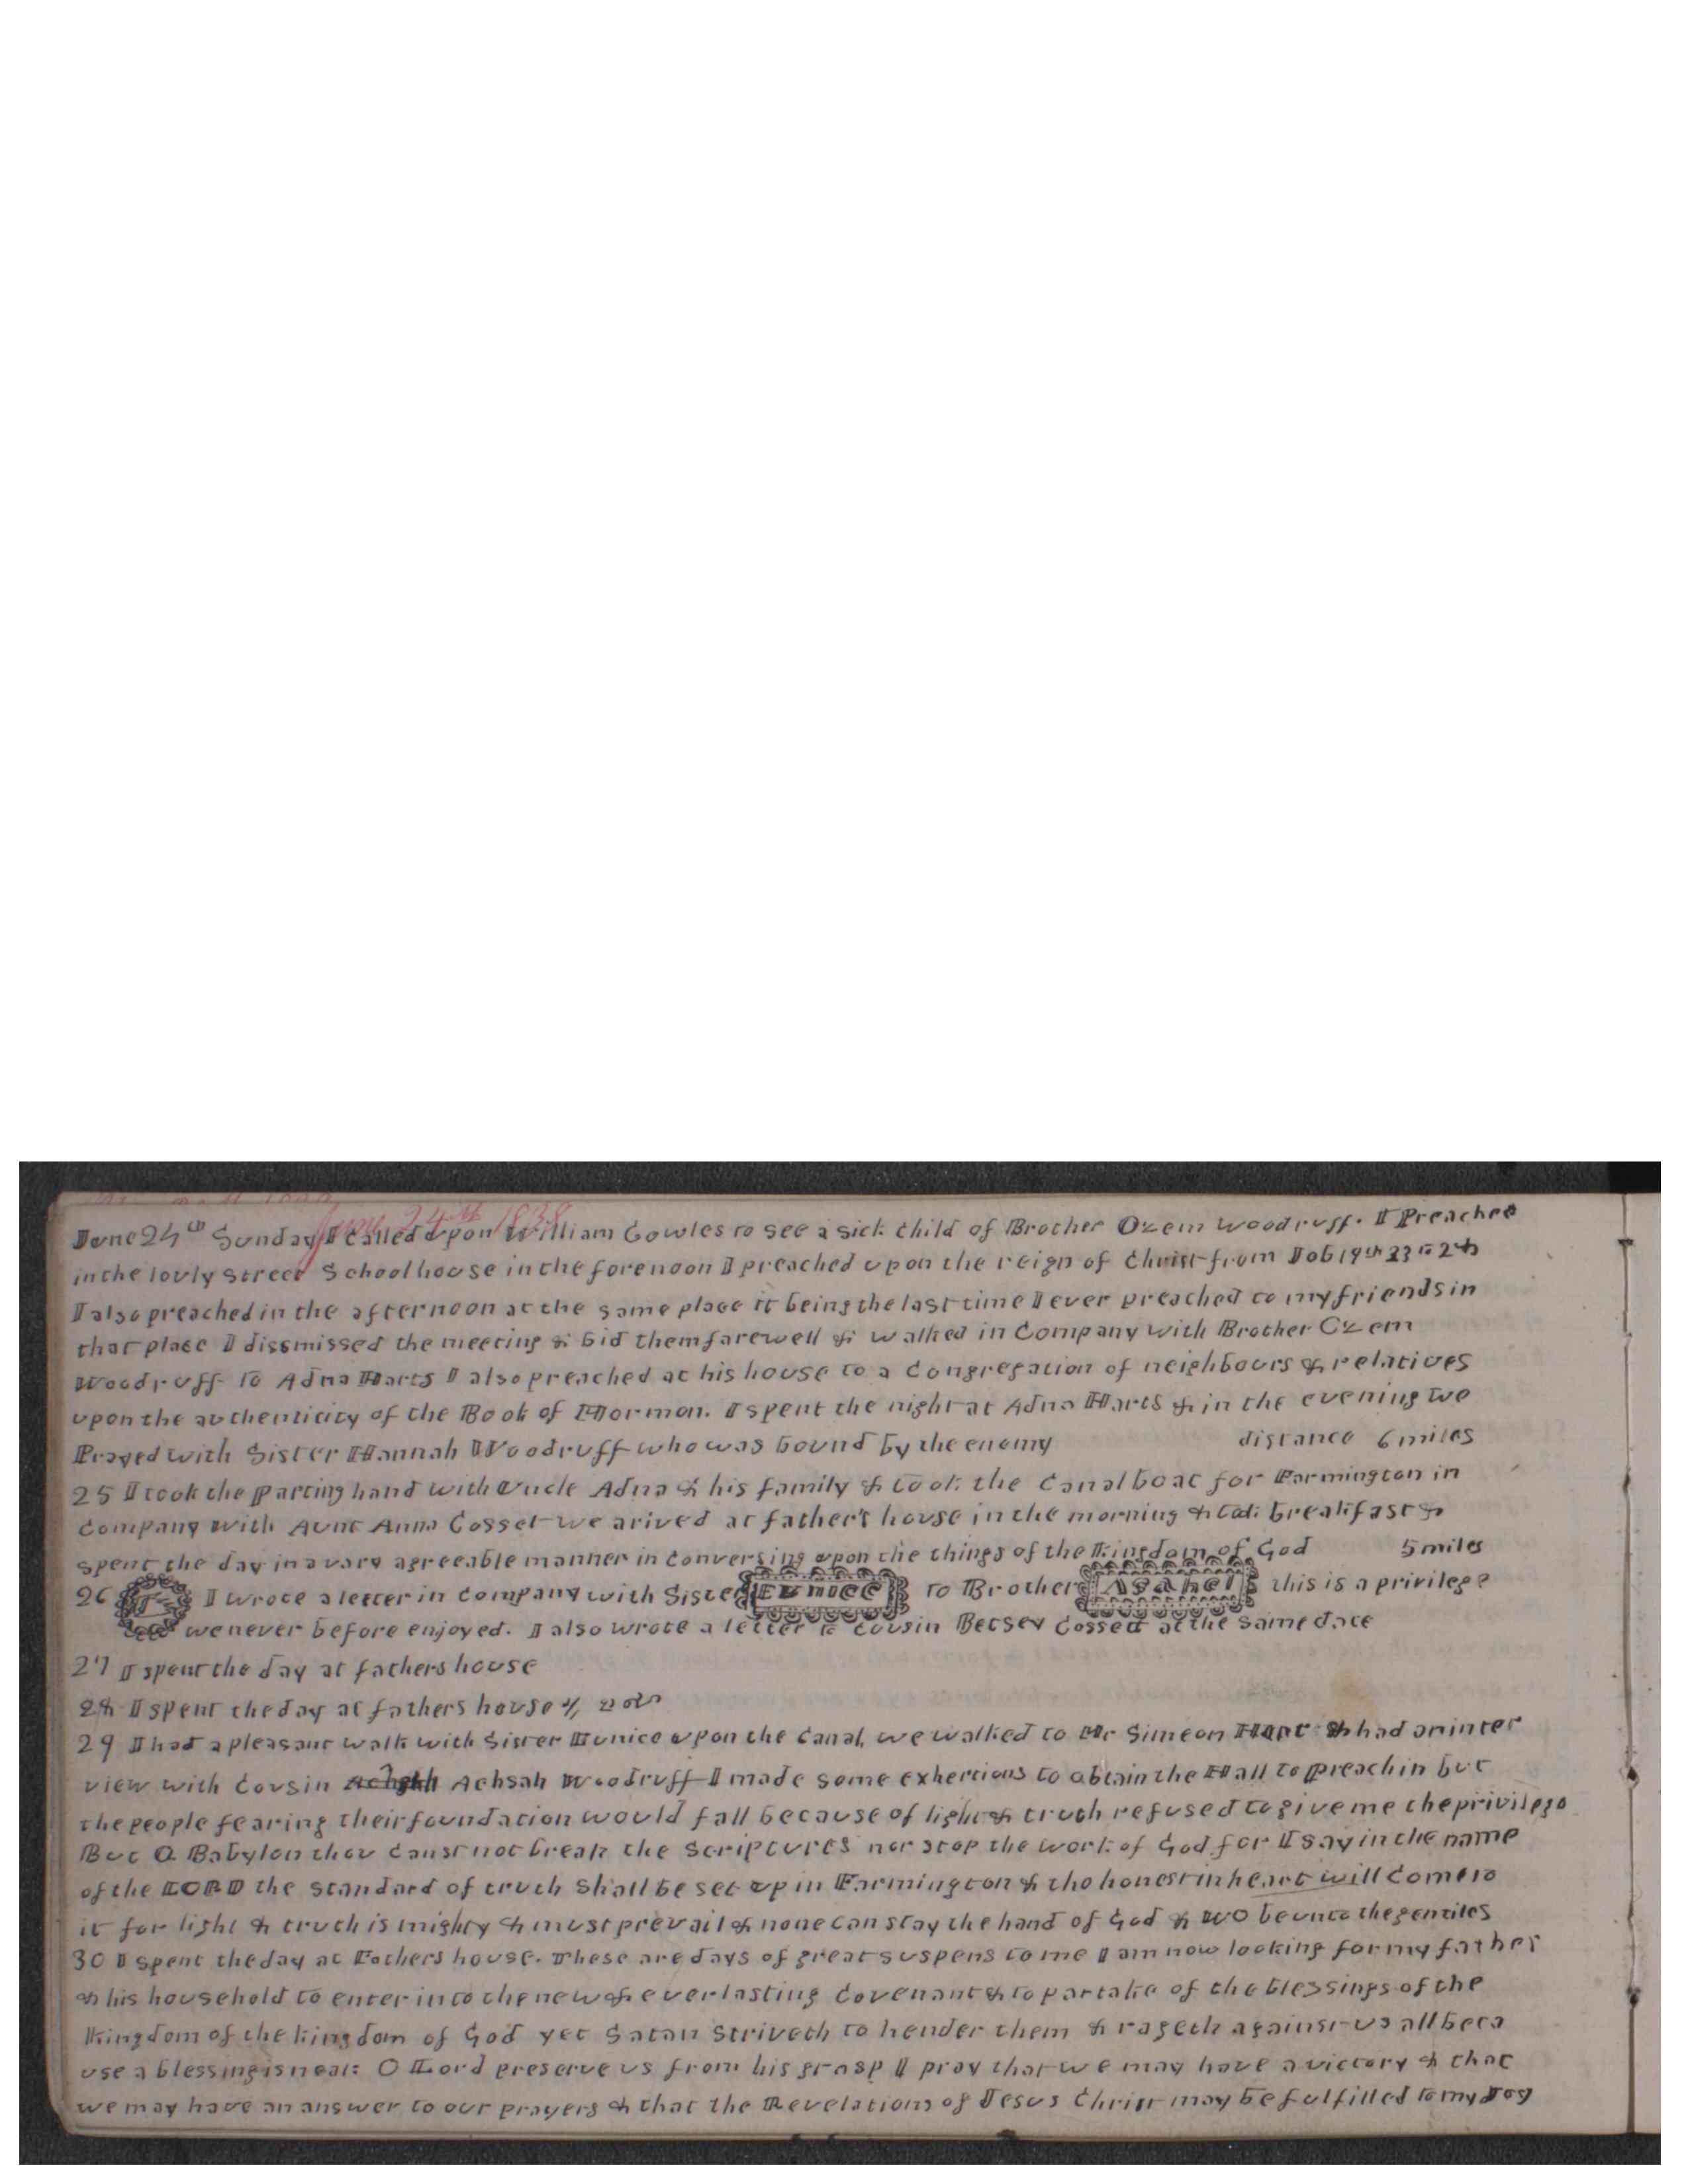 June 24th 1838
June 24th Sunday I Called upon William Cowles to see a sick child of Brother Ozem Woodruff. I Preached
in the lovly Street School house in the forenoon I preached upon the reign of Christ from Job 19th 23 to 2
I also preached in the afternoon at the same place it being the last time I ever preached to my friends in
that place I dissmissed the meeting & bid them farewell & walked in Company with Brother Ozem
Woodruff to Adna Harts I also preached at his house to a Congregation of neighbours & relatives
upon the authenticity of the Book of Mormon. I spent the night at Adna Harts & in the evening we
Prayed with Sister Hannah Woodruff who was bound by the enemy distance 6 miles
25 I took the parting hand with Uncle Adna & his family & took the Canal boat for Farmington in
Company with Aunt Anna Cosset we arived at father's house in the morning & took breakfast &
spent the day in a vary agreeable manner in Conversing upon the things of the Kingdom of God 5 miles
26 I wrote a letter in Company with Sister Eunice to Brother Asahel this is a privilege
we never before enjoyed. I also wrote a letter to Cousin Betsey Cossett at the same date
27 I spent the day at fathers house
28 I spent the day at fathers house
29 I had a pleasant walk with Sister Eunice upon the Canal, we walked to Mr Simeon Hart & had an inter
view with Cousin Achsah Woodruff I made some exhertions to obtain the Hall to preach in but
the people fearing their foundation would fall because of light & truth refused to give me the privilege
But O Babylon thou Canst not break the Scriptures nor stop the work of God for I say in the name
of the LORD the standard of truth Shall be set up in Farmington & the honest in heart will Come to
it for light & truth is mighty & must prevail & none Can stay the hand of God & WO be unto the gentiles
30 I spent the day at Fathers house. These are days of great suspens to me I am now looking for my father
& his household to enter into the new & everlasting Covenant & to partake of the blessings of the
Kingdom of the kingdom of God yet Satan Striveth to hender them & rageth against us all beca
use a blessing is near: O Lord preserve us from his grasp I pray that we may have a victory & that
we may have an answer to our prayers & that the Revelations of Jesus Christ may be fulfilled to my Joy